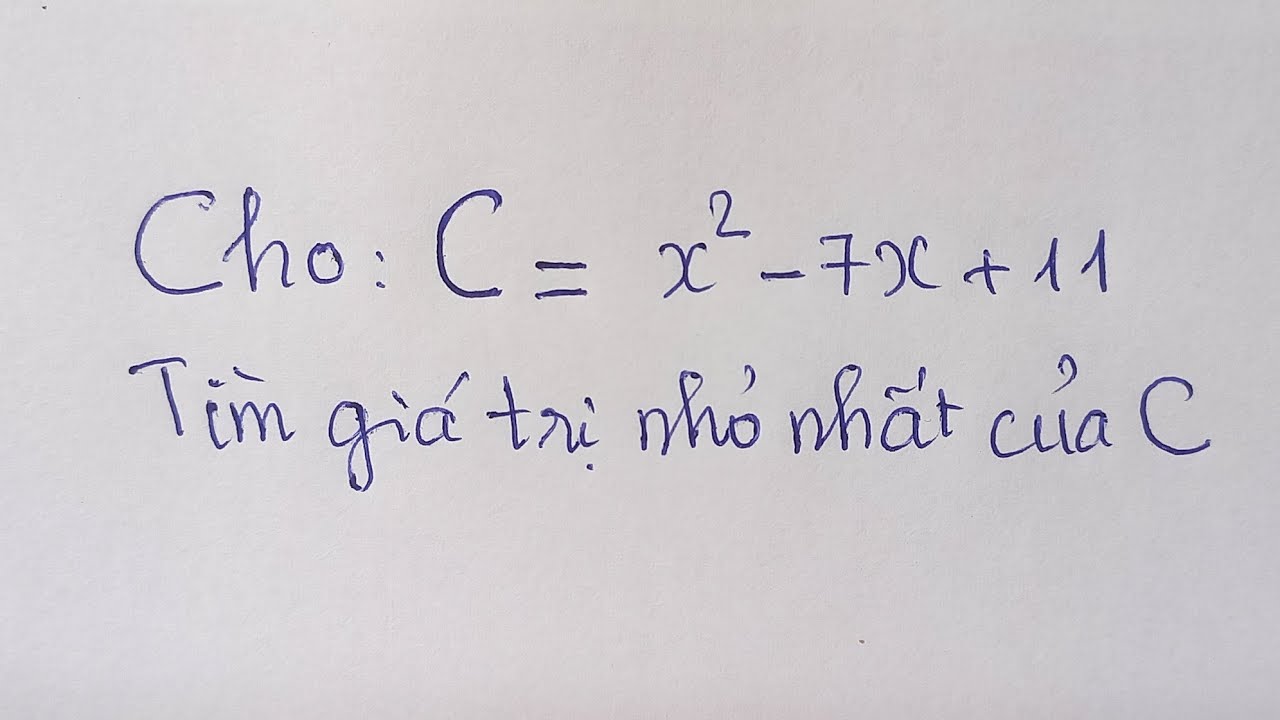 Cho: C = x² - 7x + 11
Tìm giá trị nhỏ nhất của C